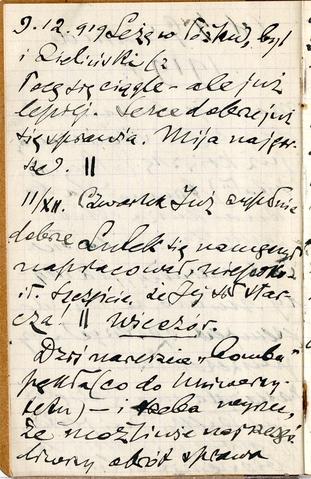 9.12.919 Leżę w łóżku, był
i Zieliński (z
Pocę się ciągle - ale już
lepiej. Serce dobrze już
się sprawia. Mija najgor-
sze). ||
11/XII. Czwartek Już zupełnie
dobrze Lulek się namęczył
napracował,
Szczęście, że Jej sił star-
cza! || Wieczór.
Dziś nareszcie "bomba"
pękła (co do Uniwersy-
tetu) - i trzeba wyzn.,
że możliwie najszczę-
śliwszy obrót sprawa